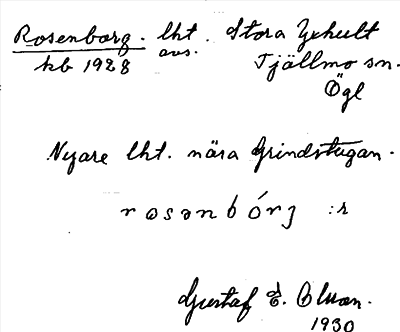 Rosenborg. lht. Stora Yxhult
kb 1928 avs. Tjällmo sn.
Ögl
Nyare lht. nära Grindstugan.
rosənbórj :r
Gustaf E. Olsson.
1930